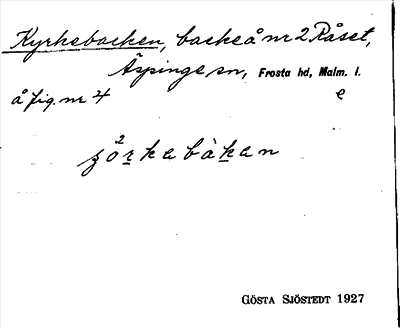 Kyrkebacken, backe å nr 2 Råset,
Äspinge sn, Frosta hd, Malm. l.
å fig. nr 4 e
GÖSTA SJÖSTEDT 1927